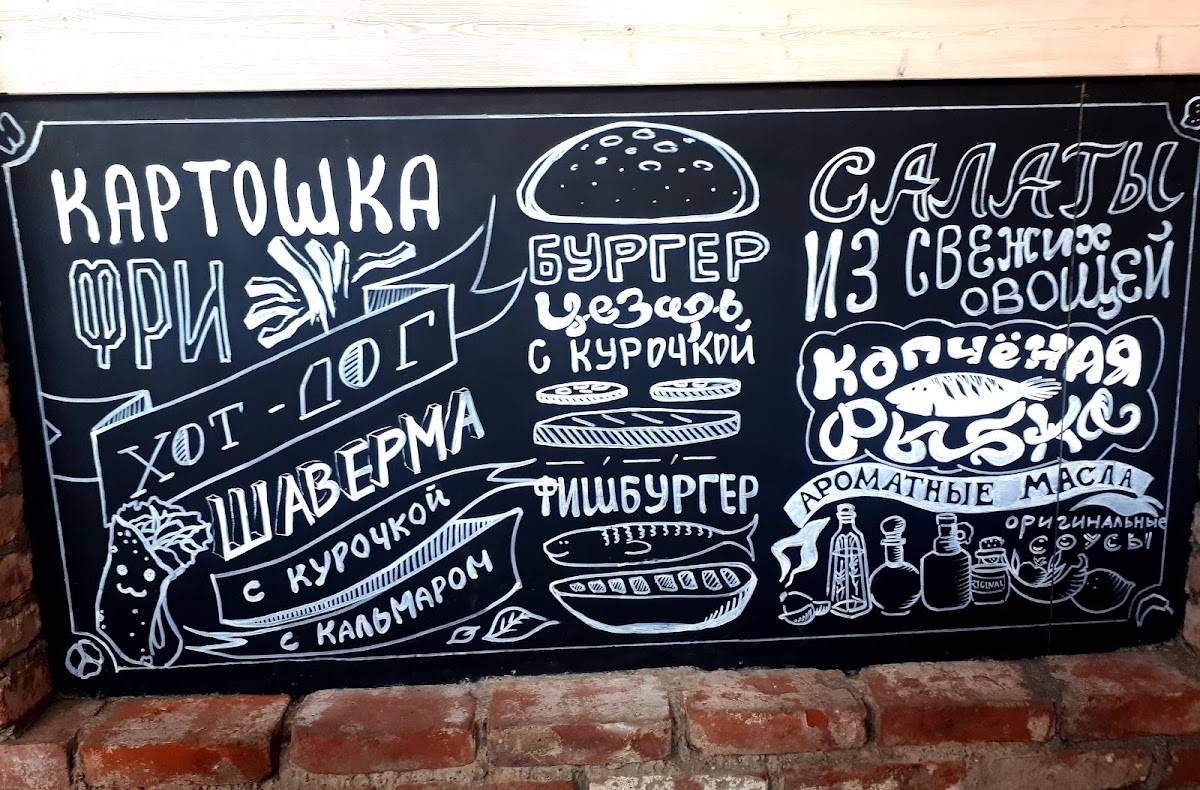 КАРТОШКА
ФРИ
ХОТ-ДОГ
ШАВЕРМА
С КУРОЧКОЙ
С КАЛЬМАРОМ
БУРГЕР
Цезарь
С КУРОЧКОЙ
ФИШБУРГЕР
САЛАТЫ
ИЗ СВЕЖИХ
ОВОЩЕЙ
КОПЧЁНАЯ
РЫБКА
АРОМАТНЫЕ МАСЛА
ОРИГИНАЛЬНЫЕ
СОУСЫ